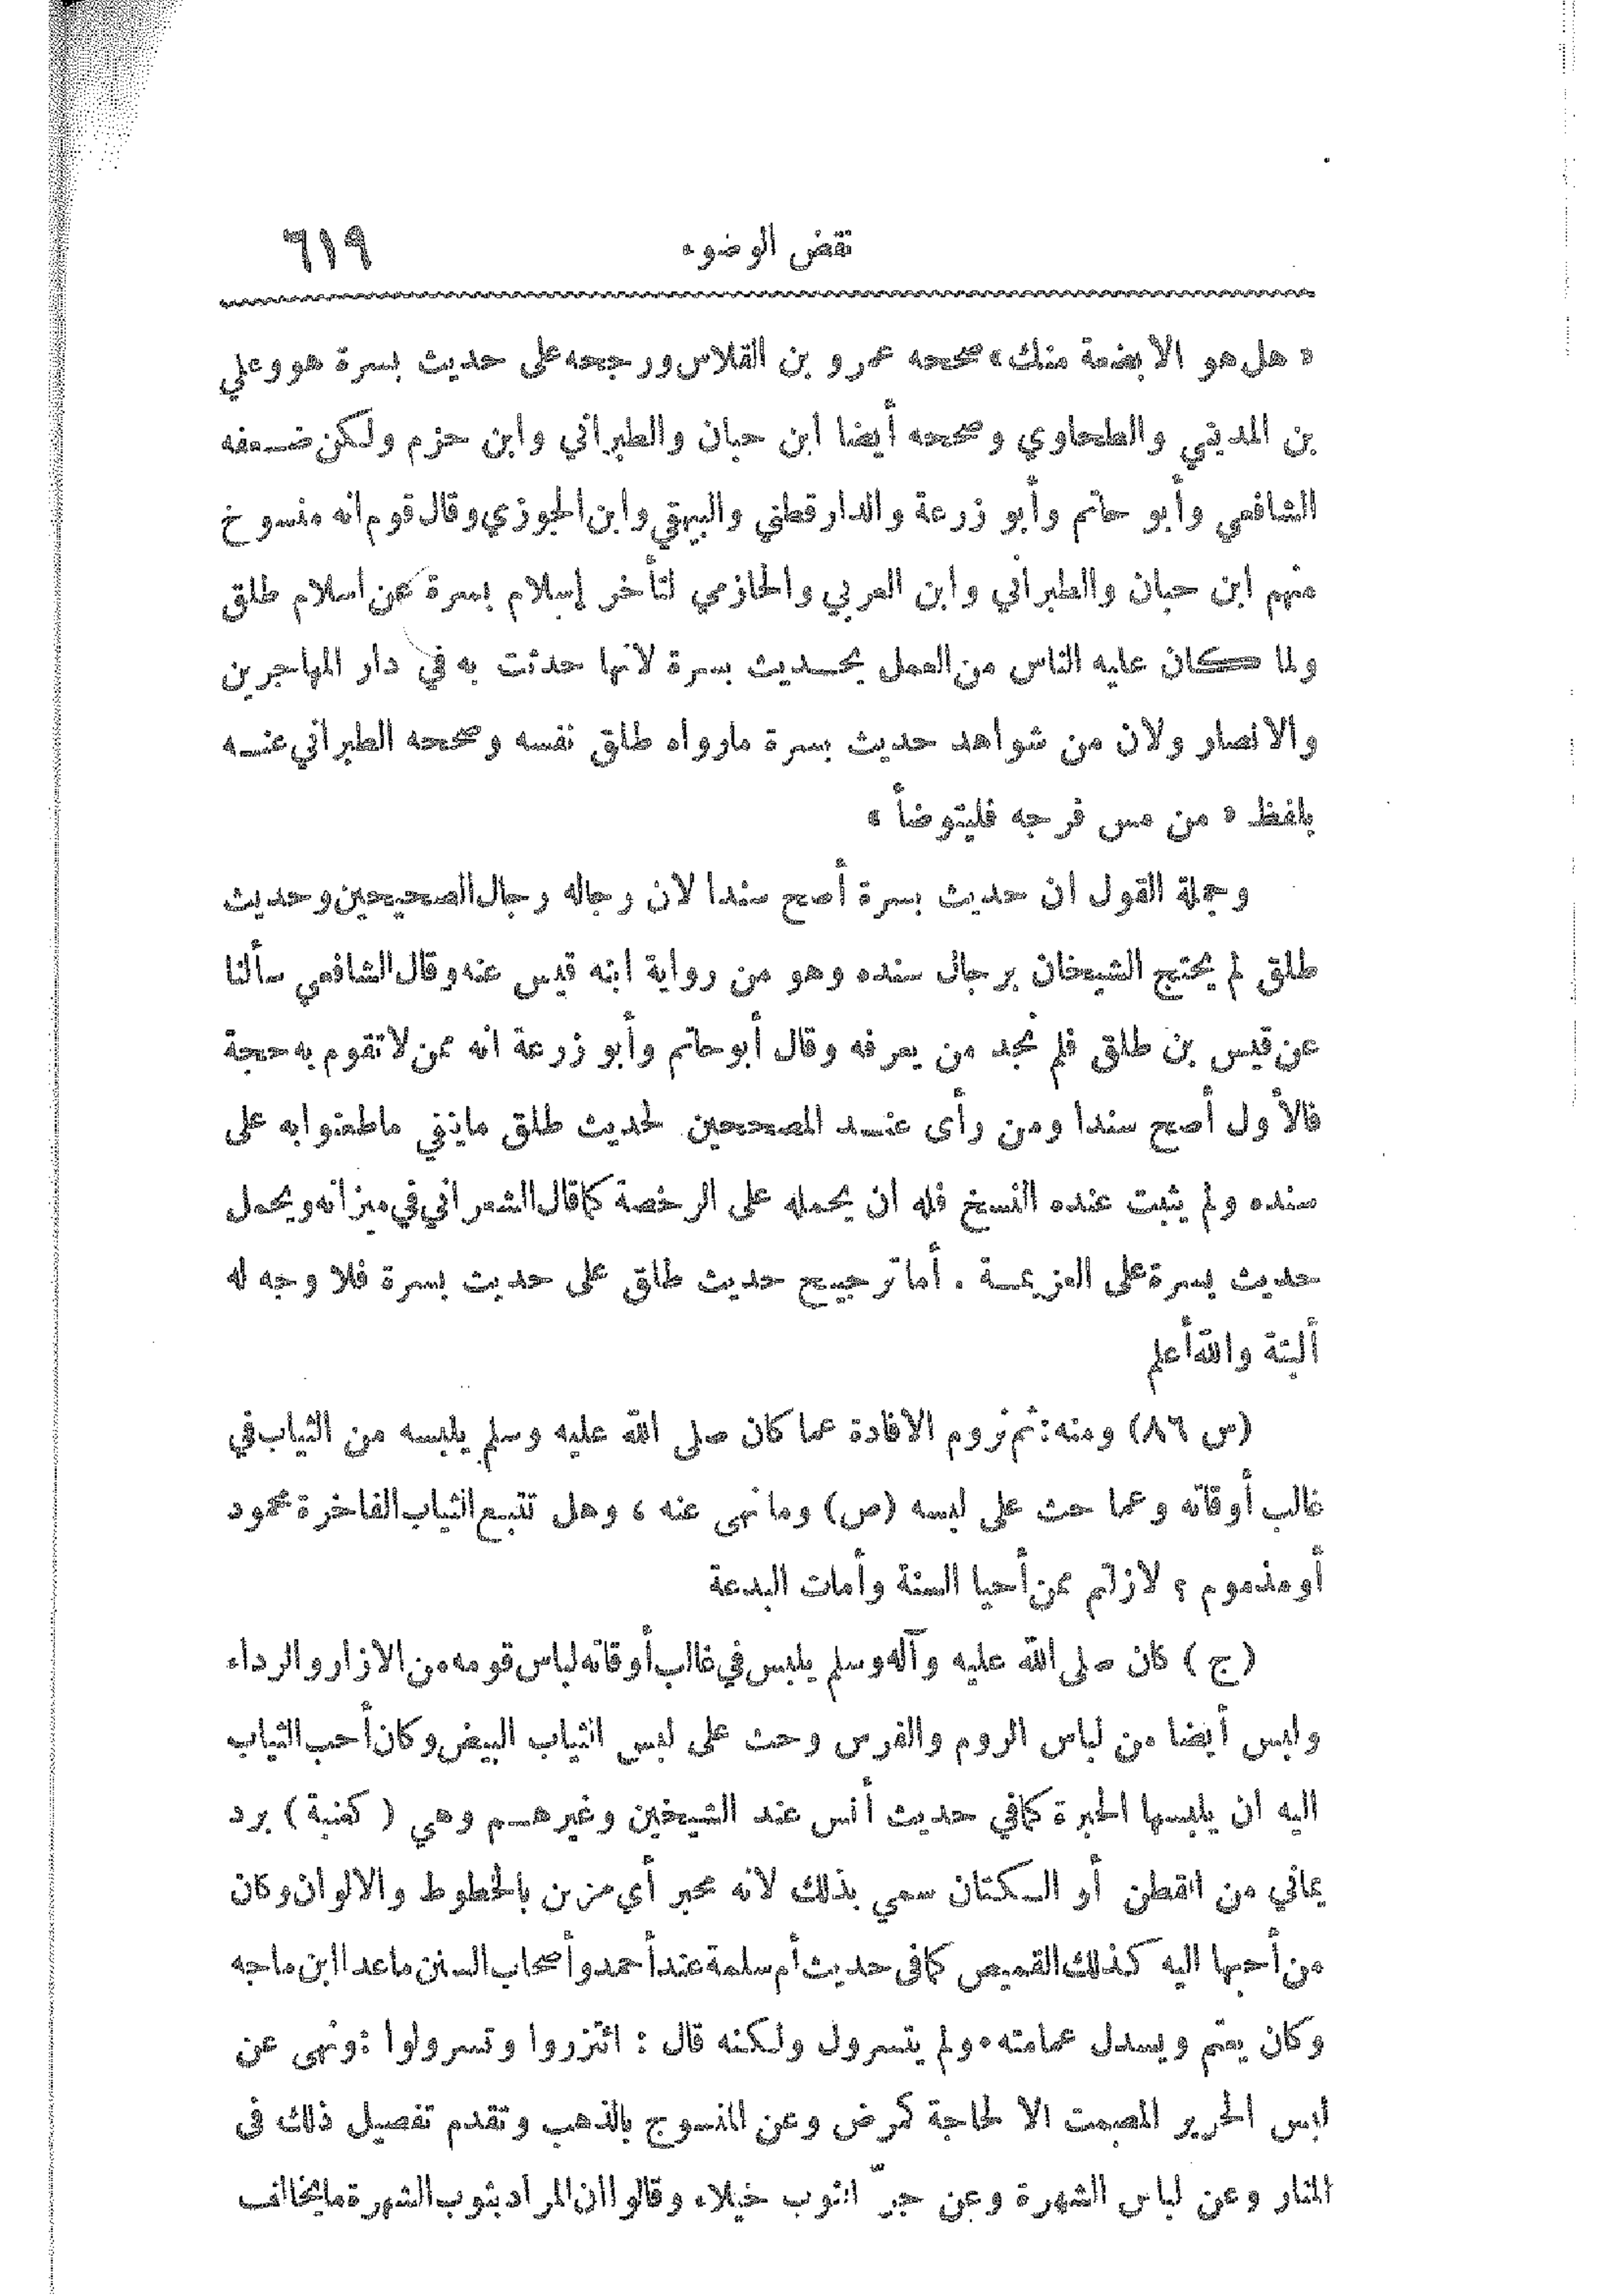 نقض الوضوء ٦١٩
« هل هو الا بضعة منك » صححه عمرو بن القلاس ورجحه على حديث بسرة هو وعلي
بن المديني والطحاوي وصححه أيضا ابن حبان والطبراني وابن حزم ولكن ضعفه
الشافعي وأبو حاتم وأبو زرعة والدارقطني والبيهقي وابن الجوزي وقال قوم انه منسوخ
منهم ابن حبان والطبراني وابن العربي والحازمي لتأخر إسلام بسرة عن اسلام طلق
ولما كان عليه الناس من العمل بحديث بسرة لانها حدثت به في دار المهاجرين
والانصار ولان من شواهد حديث بسرة مارواه طلق نفسه وصححه الطبراني عنه
بلفظ « من مس فرجه فليتوضأ »
وجملة القول ان حديث بسرة أصح سندا لان رجاله رجال الصحيحين وحديث
طلق لم يحتج الشيخان برجال سنده وهو من رواية ابنه قيس عنه وقال الشافعي سألنا
عن قيس بن طلق فلم نجد من يعرفه وقال أبو حاتم وأبو زرعة انه ممن لا تقوم به حجة
فالأول أصح سندا ومن رأى عند المصححين لحديث طلق ماينفي ماطعنوا به على
سنده ولم يثبت عنده النسخ فله ان يحمله على الرخصة كما قال الشعراني في ميزانه ويحمل
حديث بسرة على العزيمة . أما ترجيح حديث طلق على حديث بسرة فلا وجه له
ألبتة والله أعلم
(س ٨٦) ومنه : ثم نروم الافادة عما كان صلى الله عليه وسلم يلبسه من الثياب في
غالب أوقاته وعما حث على لبسه (ص) وما نهى عنه ، وهل تتبع الثياب الفاخرة محمود
أو مذموم ؟ لازلتم ممن أحيا السنة وأمات البدعة
(ج) كان صلى الله عليه وآله وسلم يلبس في غالب أوقاته لباس قومه من الازار والرداء
ولبس أيضا من لباس الروم والفرس وحث على لبس الثياب البيض وكان أحب الثياب
اليه ان يلبسها الحبرة كما في حديث أنس عند الشيخين وغيرهم وهي (كعنبة) برد
يماني من القطن أو الكتان سمي بذلك لانه محبر أي مزين بالخطوط والالوان وكان
من أحبها اليه كذلك القميص كما في حديث أم سلمة عند أحمد وأصحاب السنن ماعدا ابن ماجه
وكان يعتم ويسدل عمامته ، ولم يتسرول ولكنه قال : ائتزروا وتسرولوا : ونهى عن
لبس الحرير المصمت الا لحاجة كمرض وعن المنسوج بالذهب وتقدم تفصيل ذلك في
المنار وعن لباس الشهرة وعن جرّ الثوب خيلاء وقالوا ان المراد بثوب الشهرة مايخالف